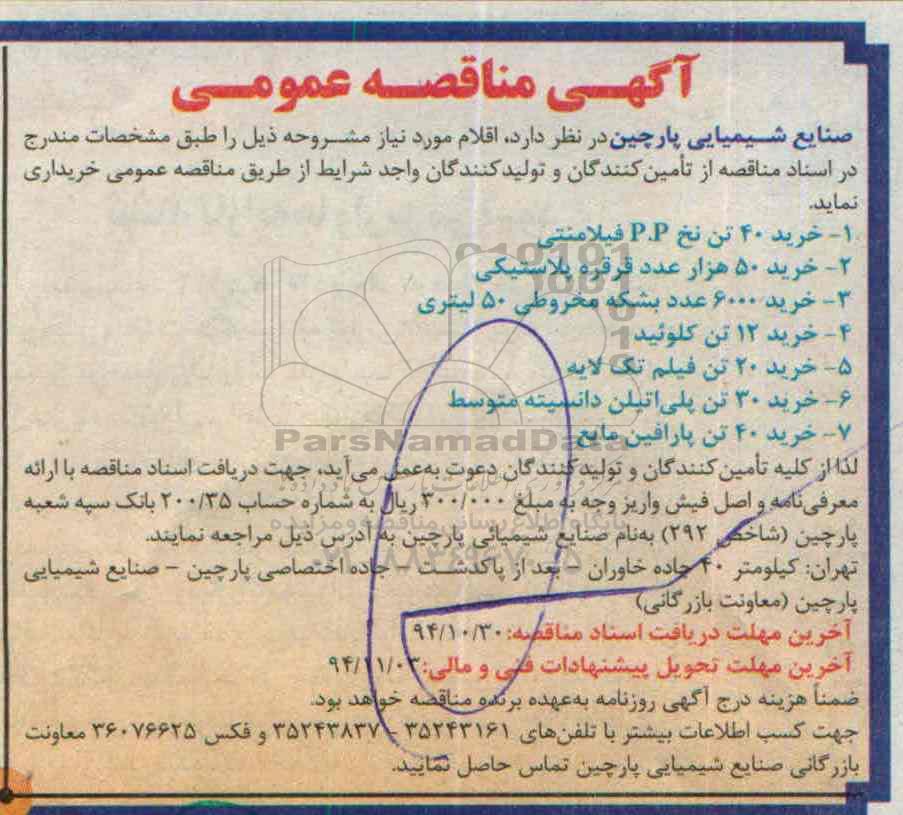 آگهی مناقصه عمومی
صنایع شیمیایی پارچین در نظر دارد، اقلام مورد نیاز مشروحه ذیل را طبق مشخصات مندرج
در اسناد مناقصه از تأمین‌کنندگان و تولیدکنندگان واجد شرایط از طریق مناقصه عمومی خریداری
نماید.
۱- خرید ۴۰ تن نخ P.P فیلامنتی
۲- خرید ۵۰ هزار عدد قرقره پلاستیکی
۳- خرید ۶۰۰۰ عدد بشکه مخروطی ۵۰ لیتری
۴- خرید ۱۲ تن کلوئید
۵- خرید ۲۰ تن فیلم تک لایه
۶- خرید ۳۰ تن پلی‌اتیلن دانسیته متوسط
۷- خرید ۴۰ تن پارافین مایع
ParsNamadData
لذا از کلیه تأمین‌کنندگان و تولیدکنندگان دعوت به‌عمل می‌آید، جهت دریافت اسناد مناقصه با ارائه
معرفی‌نامه و اصل فیش واریز وجه به مبلغ ۳۰۰/۰۰۰ ریال به شماره حساب ۲۰۰/۳۵ بانک سپه شعبه
پایگاه اطلاع رسانی مناقصه و مزایده
پارچین (شاخص ۲۹۲) به‌نام صنایع شیمیائی پارچین به آدرس ذیل مراجعه نمایند.
تهران: کیلومتر ۴۰ جاده خاوران - بعد از پاکدشت - جاده اختصاصی پارچین - صنایع شیمیایی
پارچین (معاونت بازرگانی)
آخرین مهلت دریافت اسناد مناقصه: ۹۴/۱۰/۳۰
آخرین مهلت تحویل پیشنهادات فنی و مالی: ۹۴/۱۱/۰۳
ضمناً هزینه درج آگهی روزنامه به‌عهده برنده مناقصه خواهد بود.
جهت کسب اطلاعات بیشتر با تلفن‌های ۳۵۲۴۳۱۶۱ - ۳۵۲۴۳۸۳۷ و فکس ۳۶۰۷۶۶۲۵ معاونت
بازرگانی صنایع شیمیایی پارچین تماس حاصل نمایید.